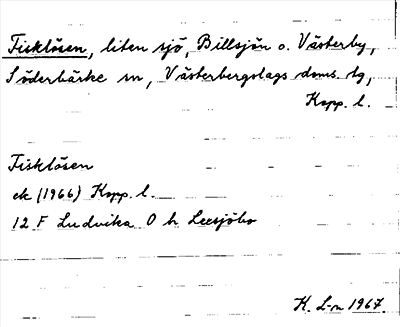 Fisklösen, liten sjö, Billsjön o. Västerby,
Söderbärke sn, Västerbergslags doms. tg,
Kopp. l.
Fisklösen
ek (1966) Kopp. l.
12 F Ludvika O h Leesjöbo
K. L-n 1967